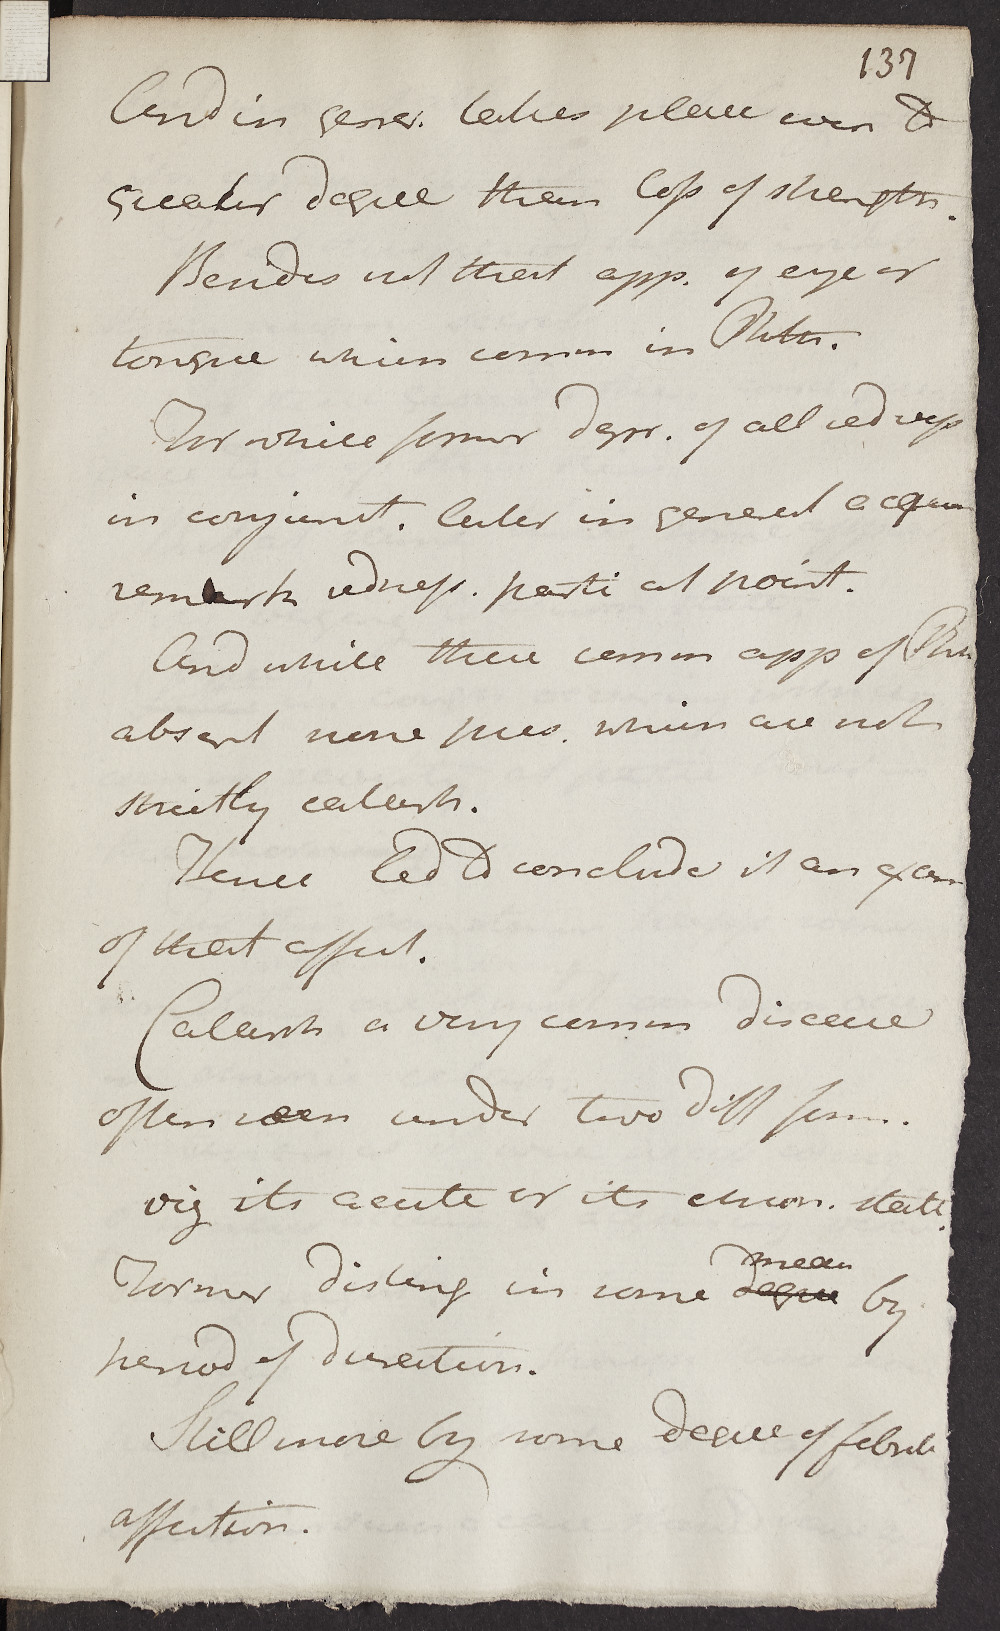 137
And in gener. takes place even to
greater degree than loss of strength.
Besides not that app. of eye or
tongue which common in Phth.
For while former depr. of all redness
in conjunct. latter in general acquire
remark redness. parti at point.
And while these common app of Phth
absent none pres. which are not
strictly catarrh.
Hence led to conclude it an exam
of that affect.
Catarrh a very common disease
often seen under two diff form.
viz its acute or its chron. state.
Former disting in some degree mean by
period of duration.
Still more by some degree of febrile
affection.